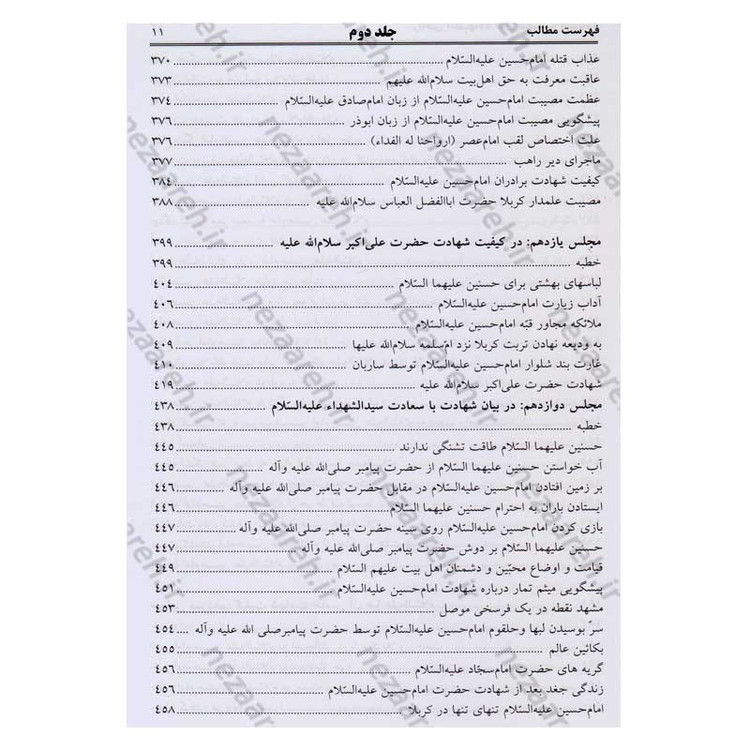 فهرست مطالب جلد دوم ۱۱
عذاب قتله امام‌حسین علیه‌السّلام ۳۷۰
عاقبت معرفت به حق اهل‌بیت سلام‌الله علیهم ۳۷۳
عظمت مصیبت امام‌حسین علیه‌السّلام از زبان امام‌صادق علیه‌السّلام ۳۷٤
پیشگویی مصیبت امام‌حسین علیه‌السّلام از زبان ابوذر ۳۷٦
علت اختصاص لقب امام‌عصر (ارواحنا له الفداء) ۳۷٦
ماجرای دیر راهب ۳۷۷
کیفیت شهادت برادران امام‌حسین علیه‌السّلام ۳۸٤
مصیبت علمدار کربلا حضرت اباالفضل العباس سلام‌الله علیه ۳۸۸
مجلس یازدهم: در کیفیت شهادت حضرت علی‌اکبر سلام‌الله علیه ۳۹۹
خطبه ۳۹۹
لباسهای بهشتی برای حسنین علیهما السّلام ٤۰٤
آداب زیارت امام‌حسین علیه‌السّلام ٤۰٦
ملائکه مجاور قبّه امام‌حسین علیه‌السّلام ٤۰۸
به ودیعه نهادن تربت کربلا نزد ام‌سلمه سلام‌الله علیها ٤۰۹
غارت بند شلوار امام‌حسین علیه‌السّلام توسط ساربان ٤۱۰
شهادت حضرت علی‌اکبر سلام‌الله علیه ٤۱۹
مجلس دوازدهم: در بیان شهادت با سعادت سیدالشهداء علیه‌السّلام ٤۳۸
خطبه ٤۳۸
حسنین علیهما السّلام طاقت تشنگی ندارند ٤٤٥
آب خواستن حسنین علیهما السّلام از حضرت پیامبر صلی‌الله علیه وآله ٤٤٥
بر زمین افتادن امام‌حسین علیه‌السّلام در مقابل حضرت پیامبر صلی‌الله علیه وآله ٤٤٦
ایستادن باران به احترام حسنین علیهما السّلام ٤٤٦
بازی کردن امام‌حسین علیه‌السّلام روی سینه حضرت پیامبر صلی‌الله علیه وآله ٤٤۷
حسنین علیهما السّلام بر دوش حضرت پیامبر صلی‌الله علیه وآله ٤٤۷
قیامت و اوضاع محبّین و دشمنان اهل بیت علیهم السّلام ٤٤۹
پیشگویی میثم تمار درباره شهادت امام‌حسین علیه‌السّلام ٤٥۱
مشهد نقطه در یک فرسخی موصل ٤٥۳
سرّ بوسیدن لبها وحلقوم امام‌حسین علیه‌السّلام توسط حضرت پیامبرصلی الله علیه وآله ٤٥٤
بکائین عالم ٤٥٥
گریه های حضرت امام‌سجّاد علیه‌السّلام ٤٥٦
زندگی جغد بعد از شهادت حضرت امام‌حسین علیه‌السّلام ٤٥٦
امام‌حسین علیه‌السّلام تنهای تنها در کربلا ٤٥۸
nezaareh.ir